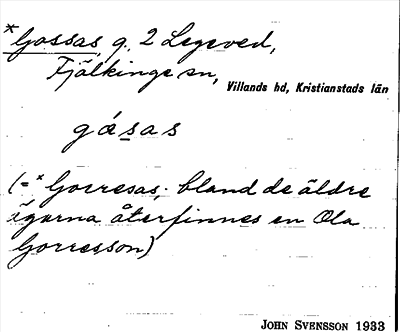 *Gossas, g. 2 Legeved,
Fjälkinge sn,
Villands hd, Kristianstads län
gásas
(= *Gorresas; bland de äldre
ägarna återfinnes en Ola
Gorresson)
JOHN SVENSSON 1933